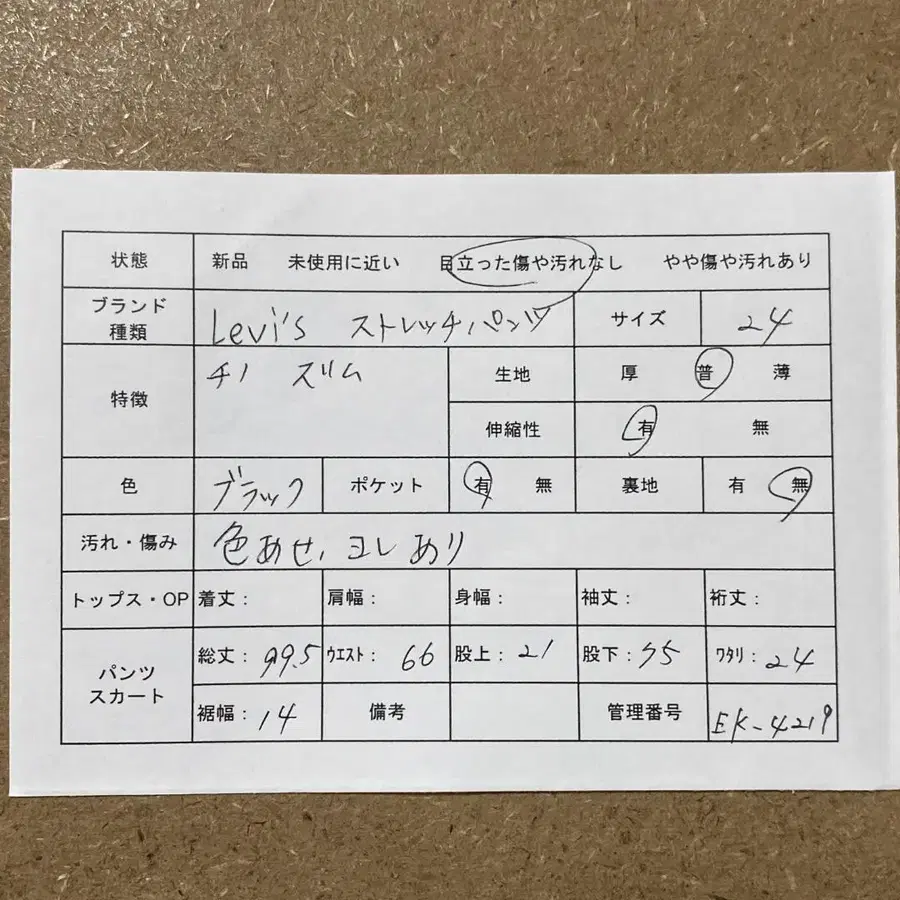 状態 新品 未使用に近い 目立った傷や汚れなし やや傷や汚れあり
ブランド 種類 Levi's ストレッチパンツ サイズ 24
特徴 チノ スリム 生地 厚 普 薄
伸縮性 有 無
色 ブラック ポケット 有 無 裏地 有 無
汚れ・傷み 色あせ、ヨレあり
トップス・OP 着丈: 肩幅: 身幅: 袖丈: 裄丈:
パンツ スカート 総丈: 99.5 ウエスト: 66 股上: 21 股下: 75 ワタリ: 24
裾幅: 14 備考 管理番号 EK-4219